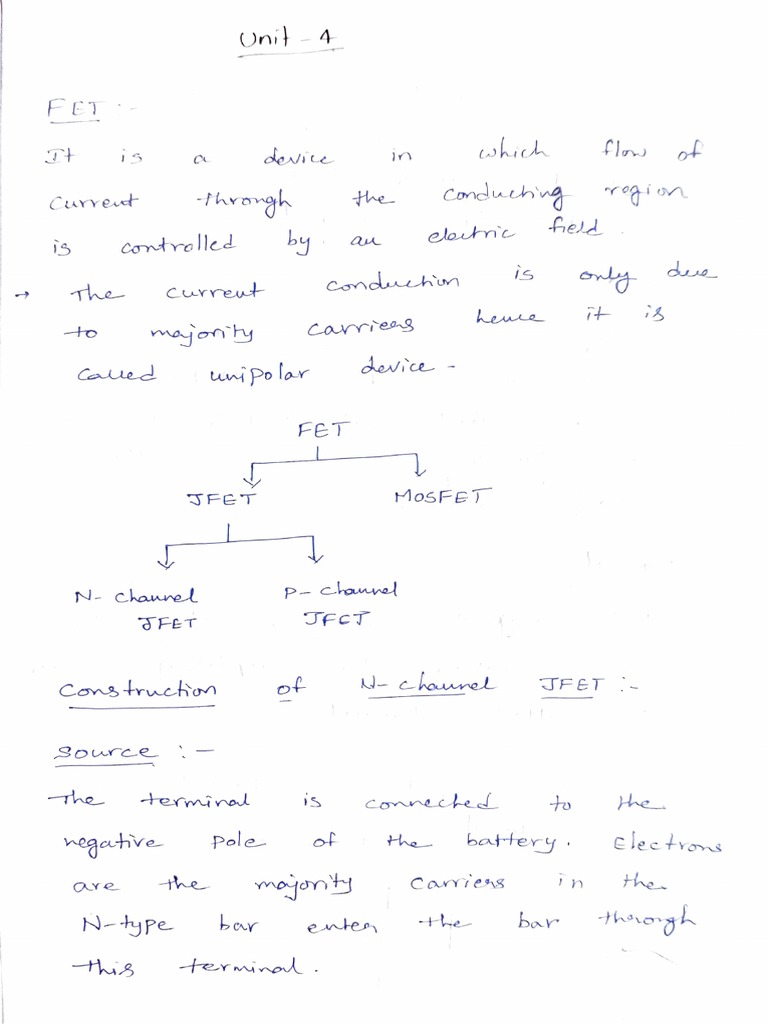 Unit - 4
FET :-
It is a device in which flow of
current through the conducting region
is controlled by an electric field.
→ The current conduction is only due
to majority carriers hence it is
called unipolar device -
FET
JFET MOSFET
N- channel P- channel
JFET JFET
Construction of N- channel JFET :-
Source :-
The terminal is connected to the
negative pole of the battery. Electrons
are the majority carriers in the
N-type bar enter the bar through
this terminal.